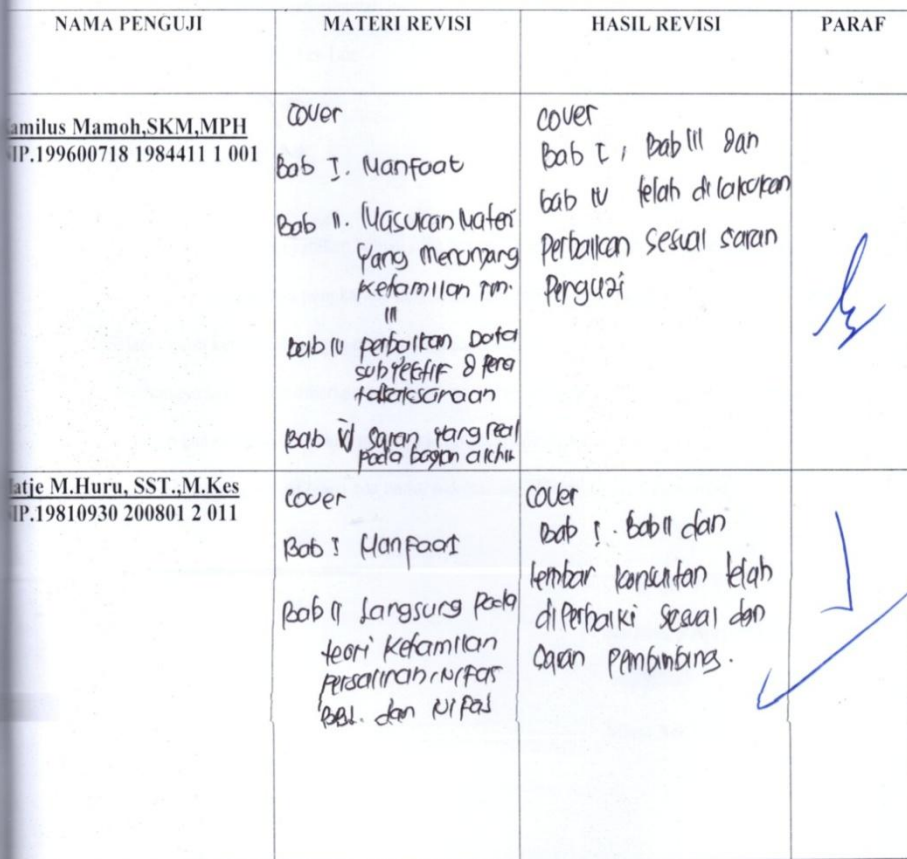 NAMA PENGUJI
MATERI REVISI
HASIL REVISI
PARAF
amilus Mamoh,SKM,MPH
IP.199600718 1984411 1 001
cover
Bab I. Manfaat
Bab II. Masukan Materi
yang menunjang
Kehamilan Trm.
III
bab IV perbaikan Data
subjektif & pena
talaksanaan
Bab V saran yang real
pada bagian akhir
cover
Bab I, Bab III dan
bab IV telah dilakukan
Perbaikan sesuai saran
Penguji
atje M.Huru, SST.,M.Kes
IP.19810930 200801 2 011
cover
Bab I Manfaat
Bab II Langsung pada
teori Kehamilan
Persalinan, Nifas
BBL. dan Nifas
cover
Bab I. Bab II dan
lembar konsultan telah
diperbaiki sesuai dan
saran pembimbing.